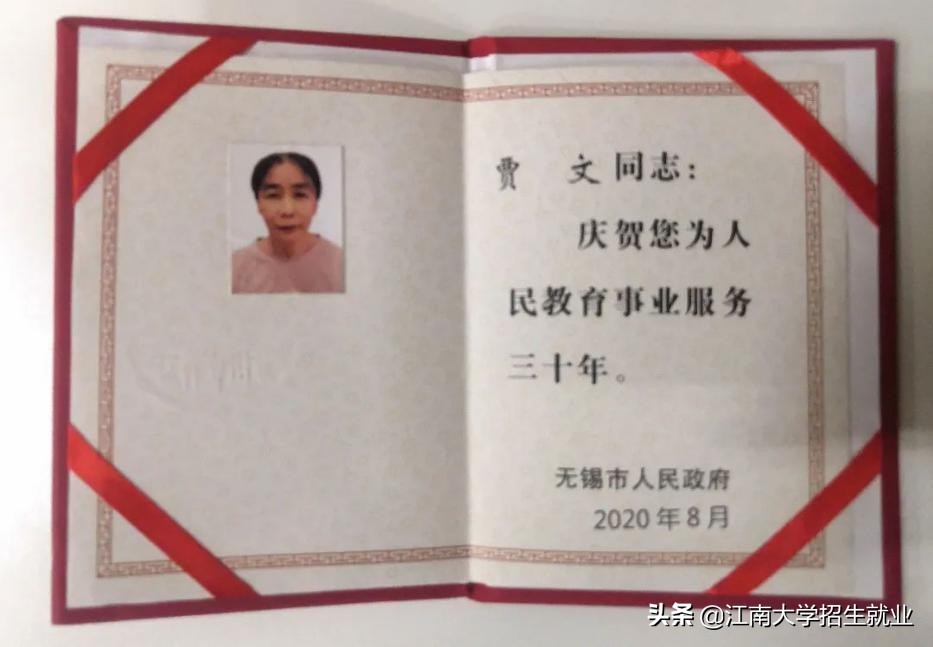 贾 文同志:
庆贺您为人
民教育事业服务
三十年。
无锡市人民政府
2020年8月
头条 @江南大学招生就业